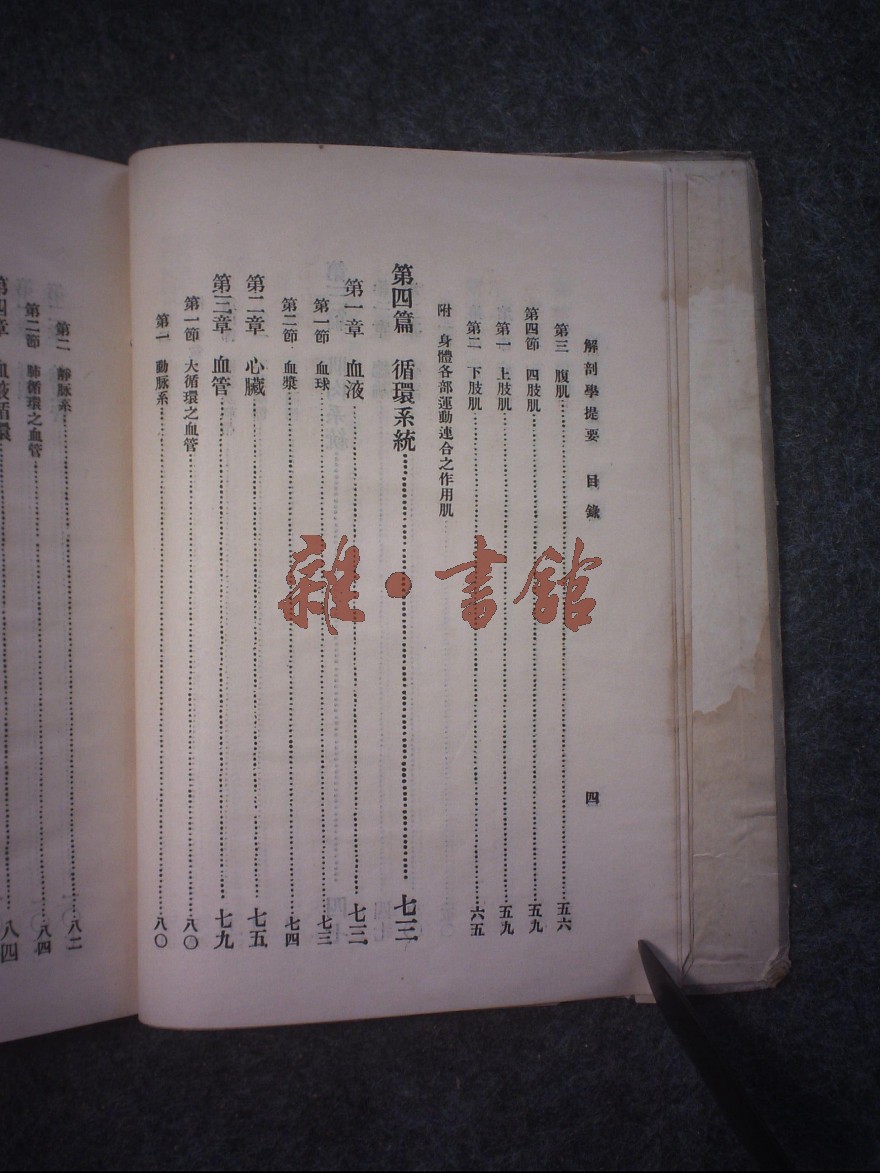 解剖學提要 目錄 四
第三 腹肌 五六
第四節 四肢肌 五九
第一 上肢肌 五九
第二 下肢肌 六五
附 身體各部運動連合之作用肌
第四篇 循環系統 七三
第一章 血液 七三
第一節 血球 七三
第二節 血漿 七四
第二章 心臟 七五
第三章 血管 七九
第一節 大循環之血管 八〇
第一 動脈系 八〇
第二 靜脈系 八二
第二節 肺循環之血管 八四
第四章 血液循環 八四
雜·書館